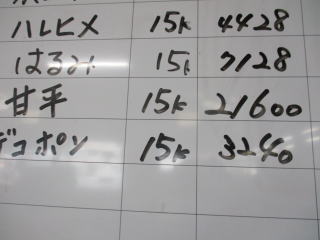 ハレヒメ 15K 4428
はるみ 15K 7128
甘平 15K 21600
デコポン 15K 3240